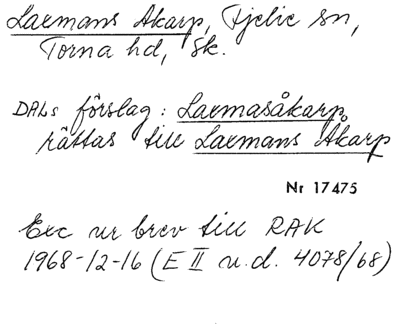 Laxmans Åkarp, Fjelie sn,
Torna hd, Sk.
DALs förslag: Laxmasåkarp
rättas till Laxmans Åkarp
Nr 17475
Exc ur brev till RAK
1968-12-16 (E II u.d. 4078/68)